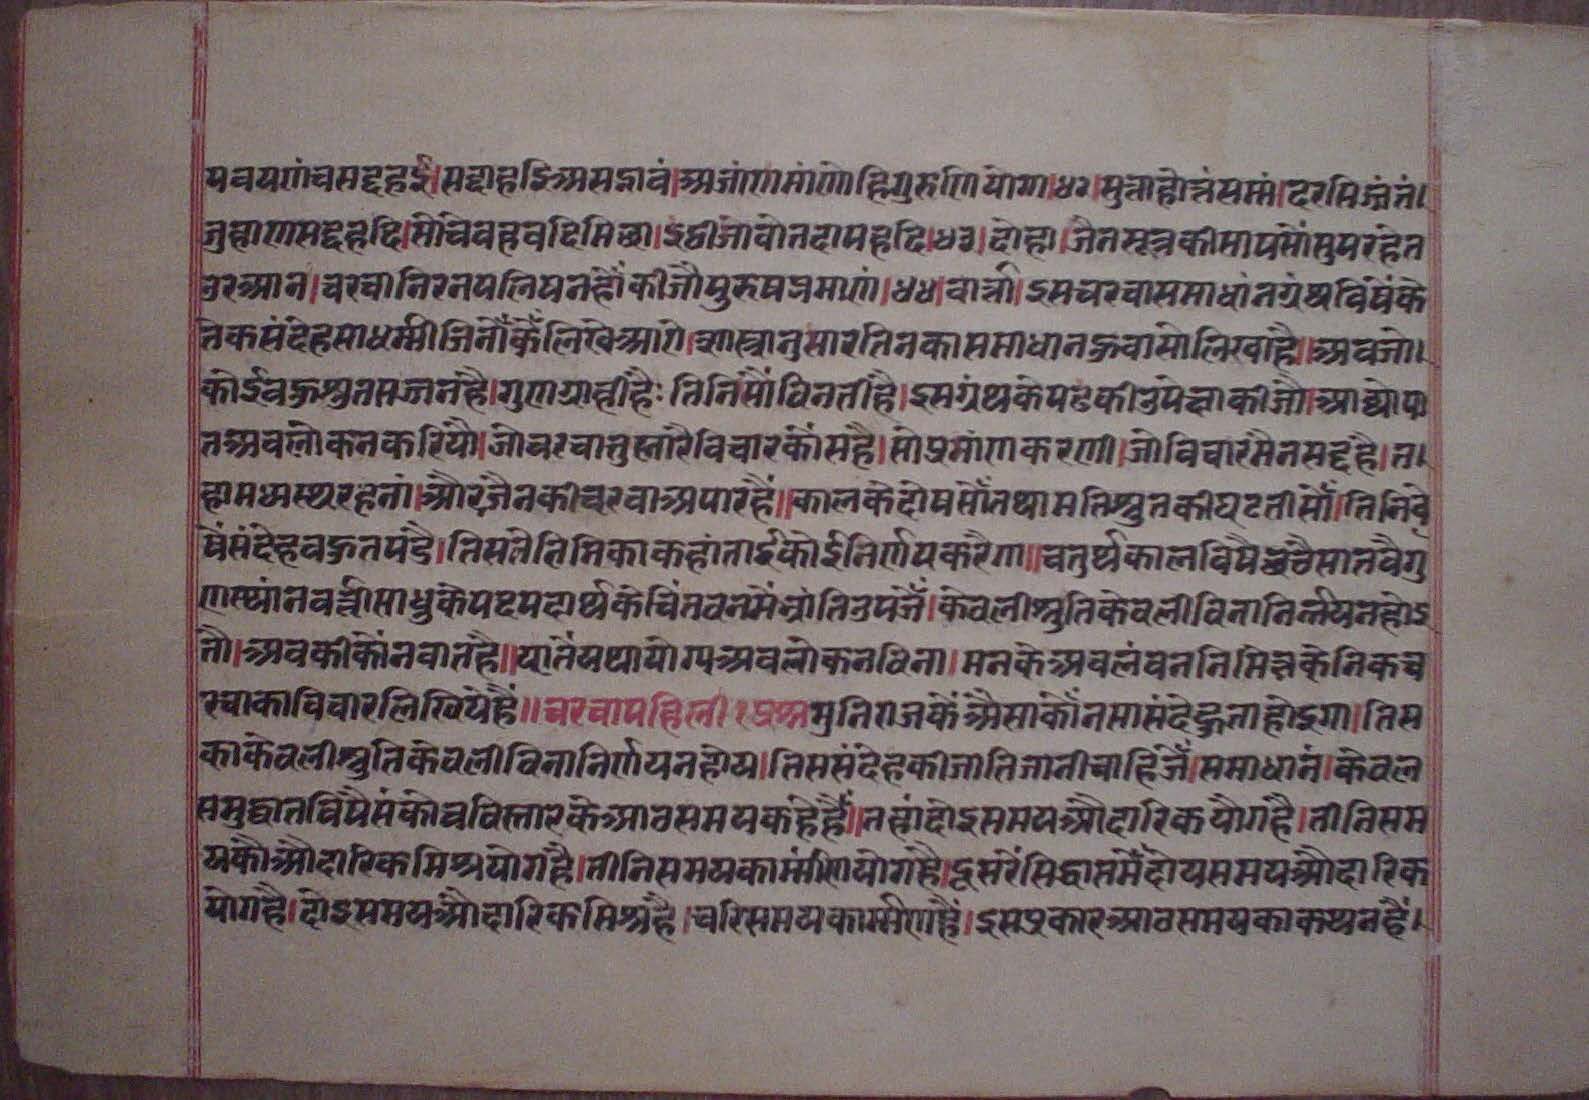 पवयणं च सद्दहई। सद्दाहइ असद्भावं। अजांणमांणो हि गुरुणियोगा। ४२। सुत्तादो त्तं सम्मं। दरसिज्जंतं।
जुदा ण सद्दहदि। सो चेव हवदि मिछा। इट्ठी जीवो तदा पहुदि। ४३। दोहा। जैन सूत्र की साष सौं सुपर हेत
उर आन। चरचा निरनय लिषत हौं कीजौ पुरुष प्रमाण। ४४। वार्त्ता। इस चरचा समाधांन ग्रंथ विषैं के
तेक संदेह साधर्म्मी जिनौं कैं लिखे आगे। शास्त्रानुसार तिन का समाधान हुवा सो लिखा है। अव जो।
कोई वहु श्रुत सज्जन है। गुणग्राही है: तिनि सौं विनती है। इस ग्रंथ के पढं की उपेक्षा न कीजौ। आद्योपा
त अवलोकन करियौ। जो चरचा तुम्हारै विचार कों सहै। सो प्रमांण करणी। जो विचार मै न सद्दहै। त।
हा मध्यस्थ रहनां। और जैन की चरचा अपार है॥ काल के दोष सौं तथा मति श्रुत की घटती सौं। तिनि वि
षैं संदेह वहुत पडै। तिस तै तिनि का कहां ताई कोई निर्णय करैगा॥ चतुर्थ काल विषै छठै सातवै गु
णस्थांन वर्त्ती साधु के षट पदार्थ के चिंतवन मैं भ्रांति उपजैं। केवली श्रुति केवली विना निर्णय न होइ
तौ। अव की कौंन वात है॥ यातैं यथायोग्य अवलोकन विना। मन के अवलंवन निमित्त केतिक च
रचा का विचार लिखिये है॥ चरचा पहिली १ प्रश्न मुनिराज कैं अैसा कौंन सा संदेह हुता होइगा। तिस
का केवली श्रुति केवली विना निर्णय न होय। तिस संदेह की जाति जानी चाहिजैं। समाधानं। केवल
समुद्घात विषै संकोच विस्तार के आठ समय कहे है॥ तहां दोइ समय औदारिक योग है। तीनि सम
य कौ औदारिक मिश्र योग है। तीनि समय कार्म्मण योग है। दूसरे सिद्धांत मैं दोय समय औदारिक
योग है। दोइ समय औदारिक मिश्र है। चरि समय कार्म्मण है। इस प्रकार आठ समय का कथन है।